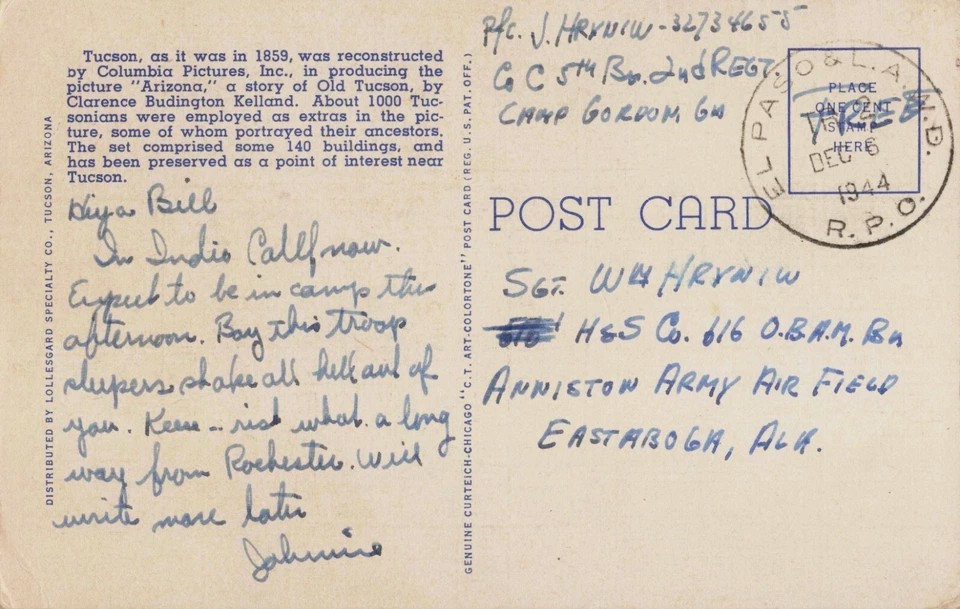 Tucson, as it was in 1859, was reconstructed
by Columbia Pictures, Inc., in producing the
picture "Arizona," a story of Old Tucson, by
Clarence Budington Kelland. About 1000 Tuc-
sonians were employed as extras in the pic-
ture, some of whom portrayed their ancestors.
The set comprised some 140 buildings, and
has been preserved as a point of interest near
Tucson.
Hiya Bill
In Indio Calif now.
Expect to be in camp this
afternoon. Boy this troop
sleepers shake all hell out of
you. Keen - rist what a long
way from Rochester. Will
write more later
Johnnie
DISTRIBUTED BY LOLLESGARD SPECIALTY CO., TUCSON, ARIZONA
GENUINE CURTEICH-CHICAGO "C.T. ART-COLORTONE" POST CARD (REG. U.S. PAT. OFF.)
Pfc. J. HRYNIW - 32734655
Co C 5TH Bn. 2nd REGT.
CAMP GORDON GA
PLACE
ONE CENT
STAMP
HERE
FREE
EL PASO & L.A. W.D.
DEC 6
1944
R.P.O.
POST CARD
SGT. WM HRYNIW
H&S Co. 616 O.B.A.M. Bn
ANNISTON ARMY AIR FIELD
EASTABOGA, ALA.